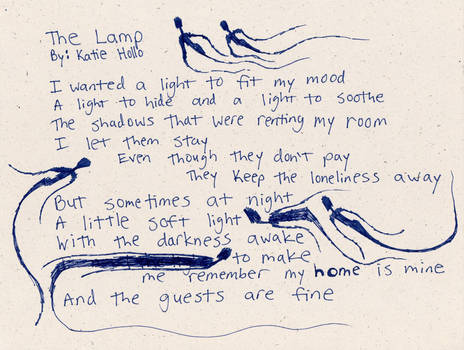 The Lamp
By: Katie Hollo
I wanted a light to fit my mood
A light to hide and a light to soothe
The shadows that were renting my room
I let them stay
Even though they don't pay
They keep the loneliness away
But sometimes at night
A little soft light
With the darkness awake
to make
me remember my home is mine
And the guests are fine